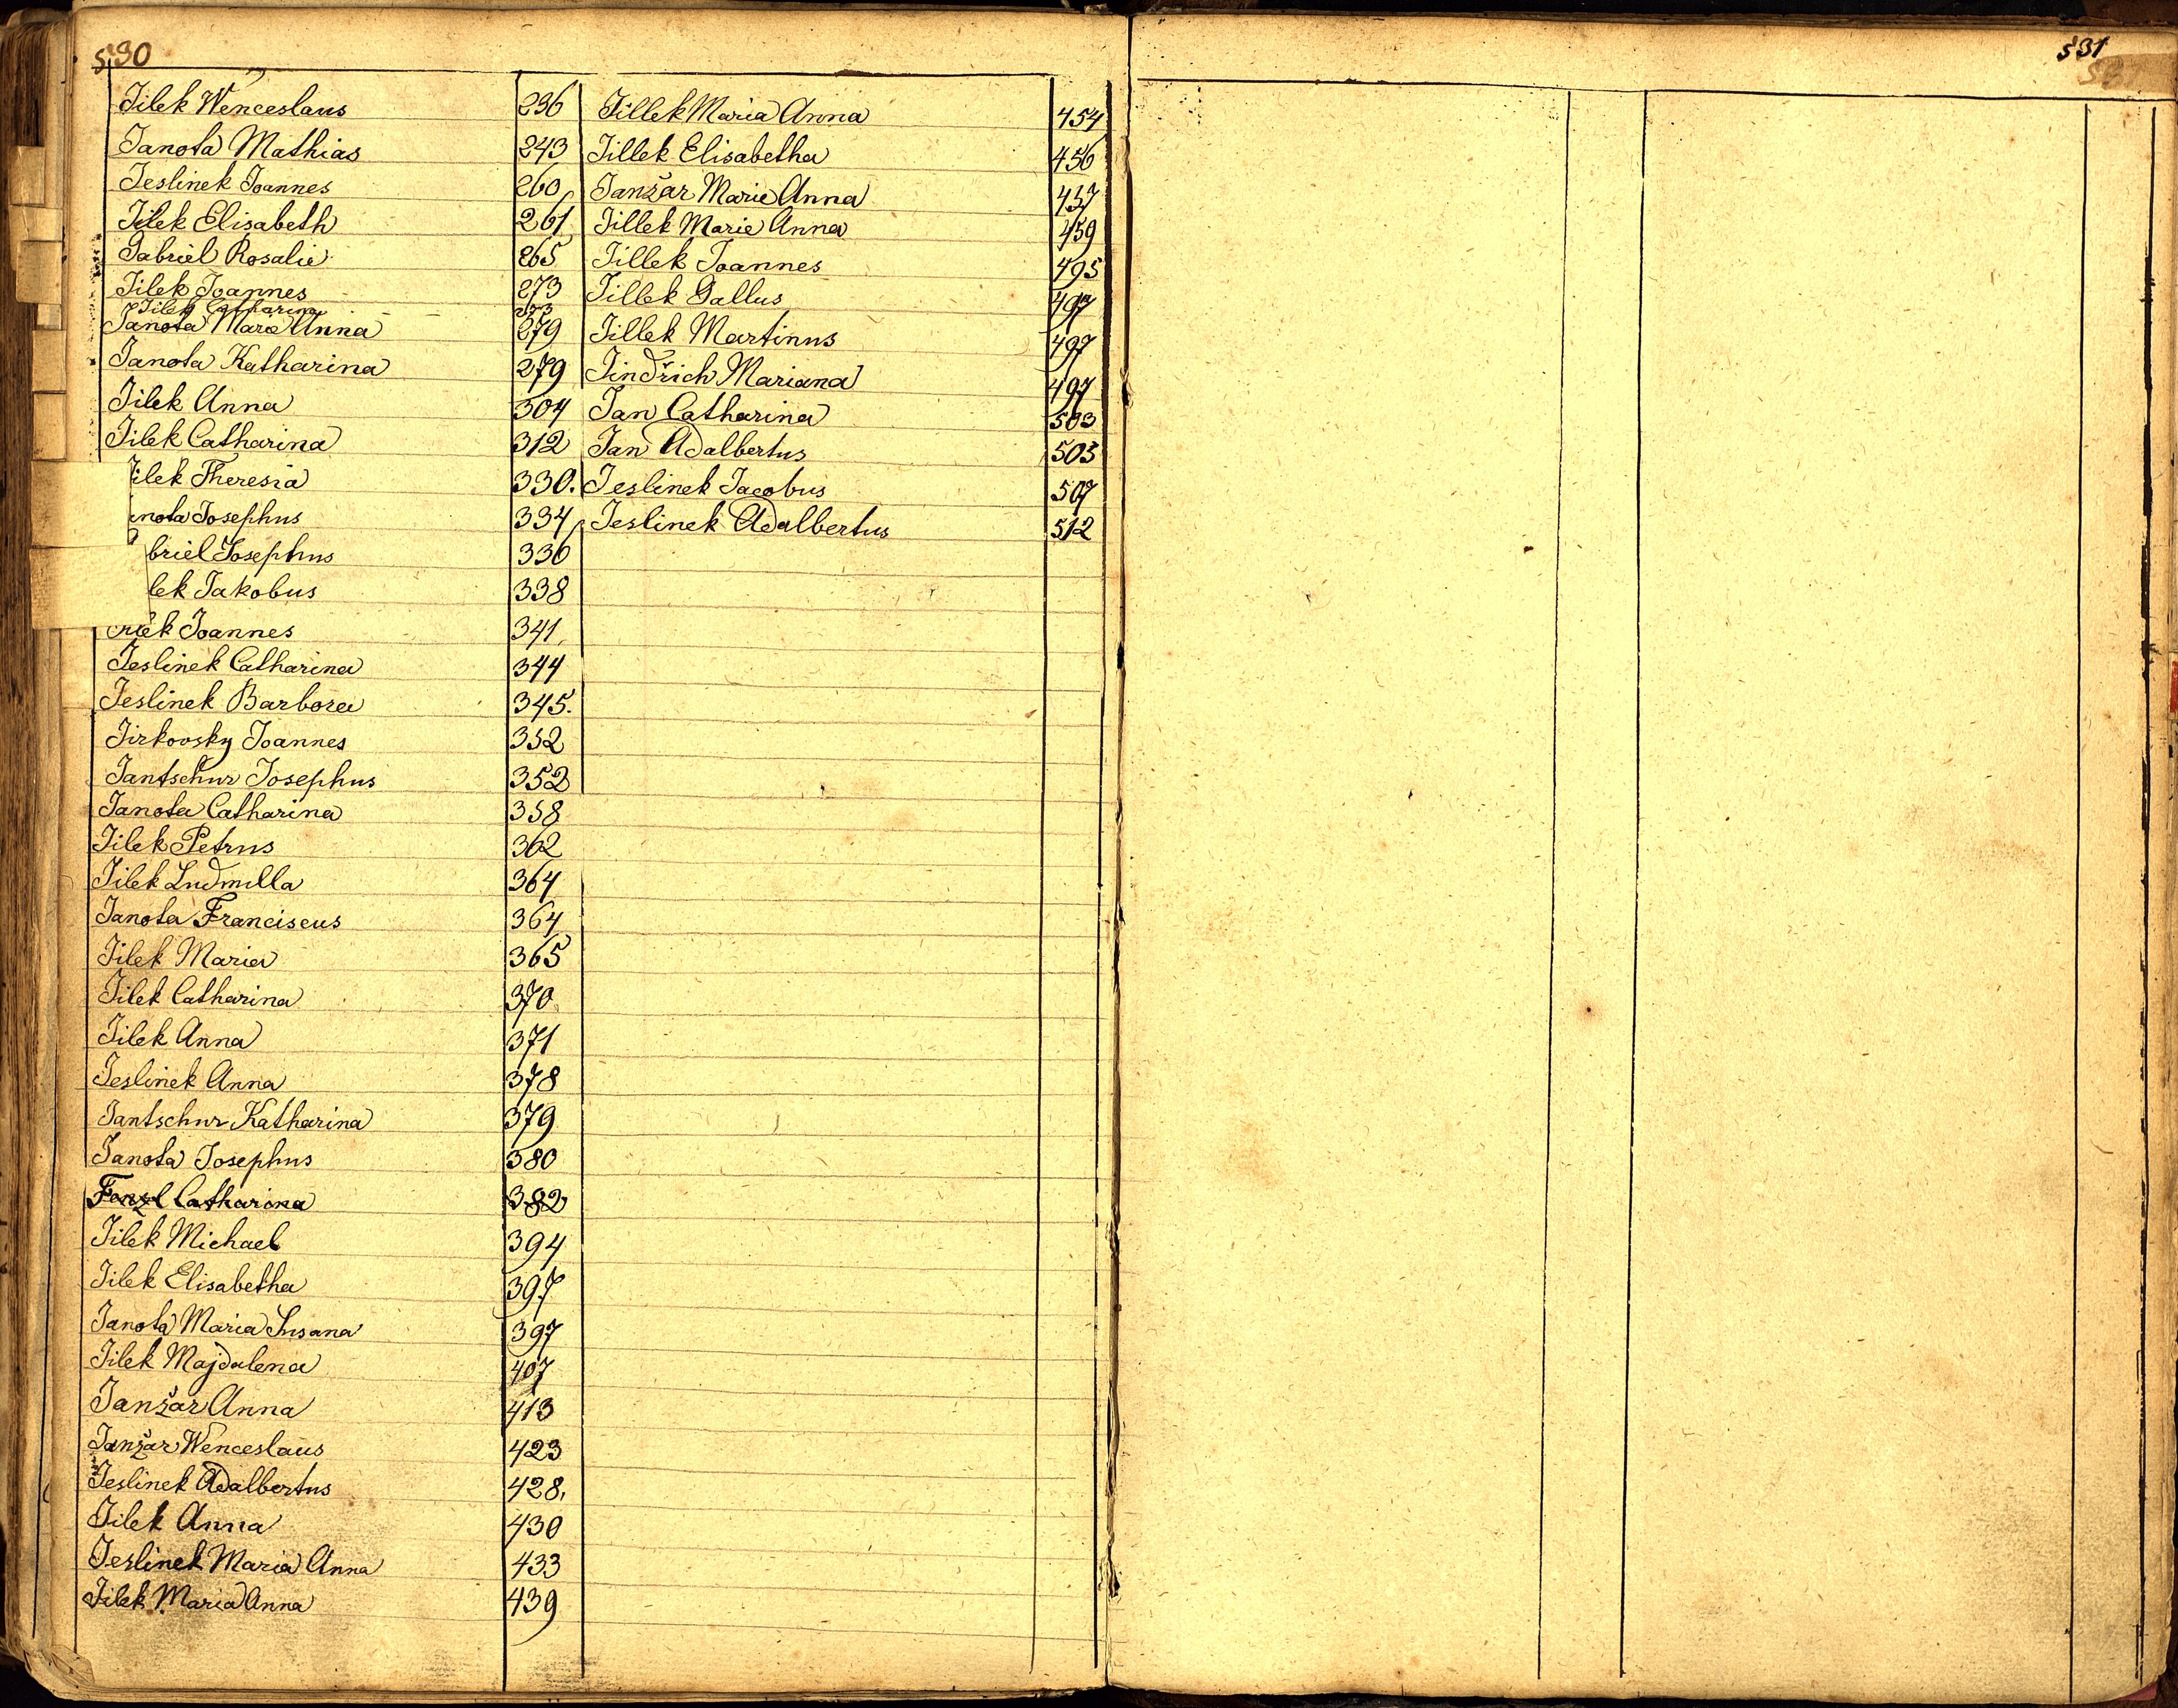 530
Jilek Wenceslaus 236
Janota Mathias 243
Jeslinek Joannes 260
Jilek Elisabeth 261
Gabriel Rosalie 265
Jilek Joannes 273
Jilek Catharina 273
Janota Mara Anna 279
Janota Katharina 279
Jilek Anna 304
Jilek Catharina 312
ilek Theresia 330.
nota Josephus 334
briel Josephus 336
lek Jakobus 338
Joannes 341
Jeslinek Catharina 344
Jeslinek Barbora 345.
Jirkovsky Joannes 352
Jantschur Josephus 352
Janota Catharina 358
Jilek Petrus 362
Jilek Ludmilla 364
Janota Franciscus 364
Jilek Maria 365
Jilek Catharina 370
Jilek Anna 371
Jeslinek Anna 378
Jantschur Katharina 379
Janota Josephus 380
Catharina 382
Jilek Michael 394
Jilek Elisabetha 397
Janota Maria Susana 397
Jilek Majdalena 407
Janžar Anna 413
Janžar Wenceslaus 423
Jeslinek Adalbertus 428,
Jilek Anna 430
Jeslinek Maria Anna 433
Jilek Maria Anna 439
Jillek Maria Anna 454
Jillek Elisabetha 456
Janžar Marie Anna 457
Jillek Marie Anna 459
Jillek Joannes 495
Jillek Gallus 497
Jillek Martinus 497
Jindřich Mariana 497
Jan Catharina 503
Jan Adalbertus 503
Jeslinek Jacobus 507
Jeslinek Adalbertus 512
531